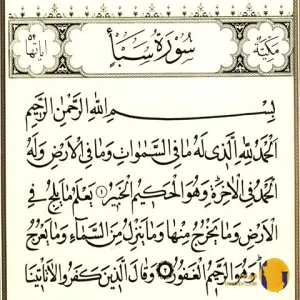 مكية
سورة سبأ
آياتها ٥٤
بسم الله الرحمن الرحيم
الحمد لله الذي له ما في السموات وما في الأرض وله
الحمد في الآخرة وهو الحكيم الخبير ١ يعلم ما يلج في
الأرض وما يخرج منها وما ينزل من السماء وما يعرج
وهو الرحيم الغفور وقال الذين كفروا لا تأتينا